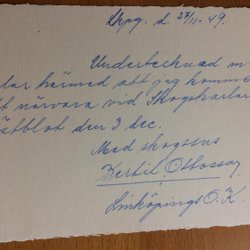 Lkpg. d. 27/11-49.
Undertecknad m
lar härmed att jag komme
t närvara vid Skogskarlar
östblot den 3 dec.
Med skogssus
Bertil Ottosson
Linköpings O.K.